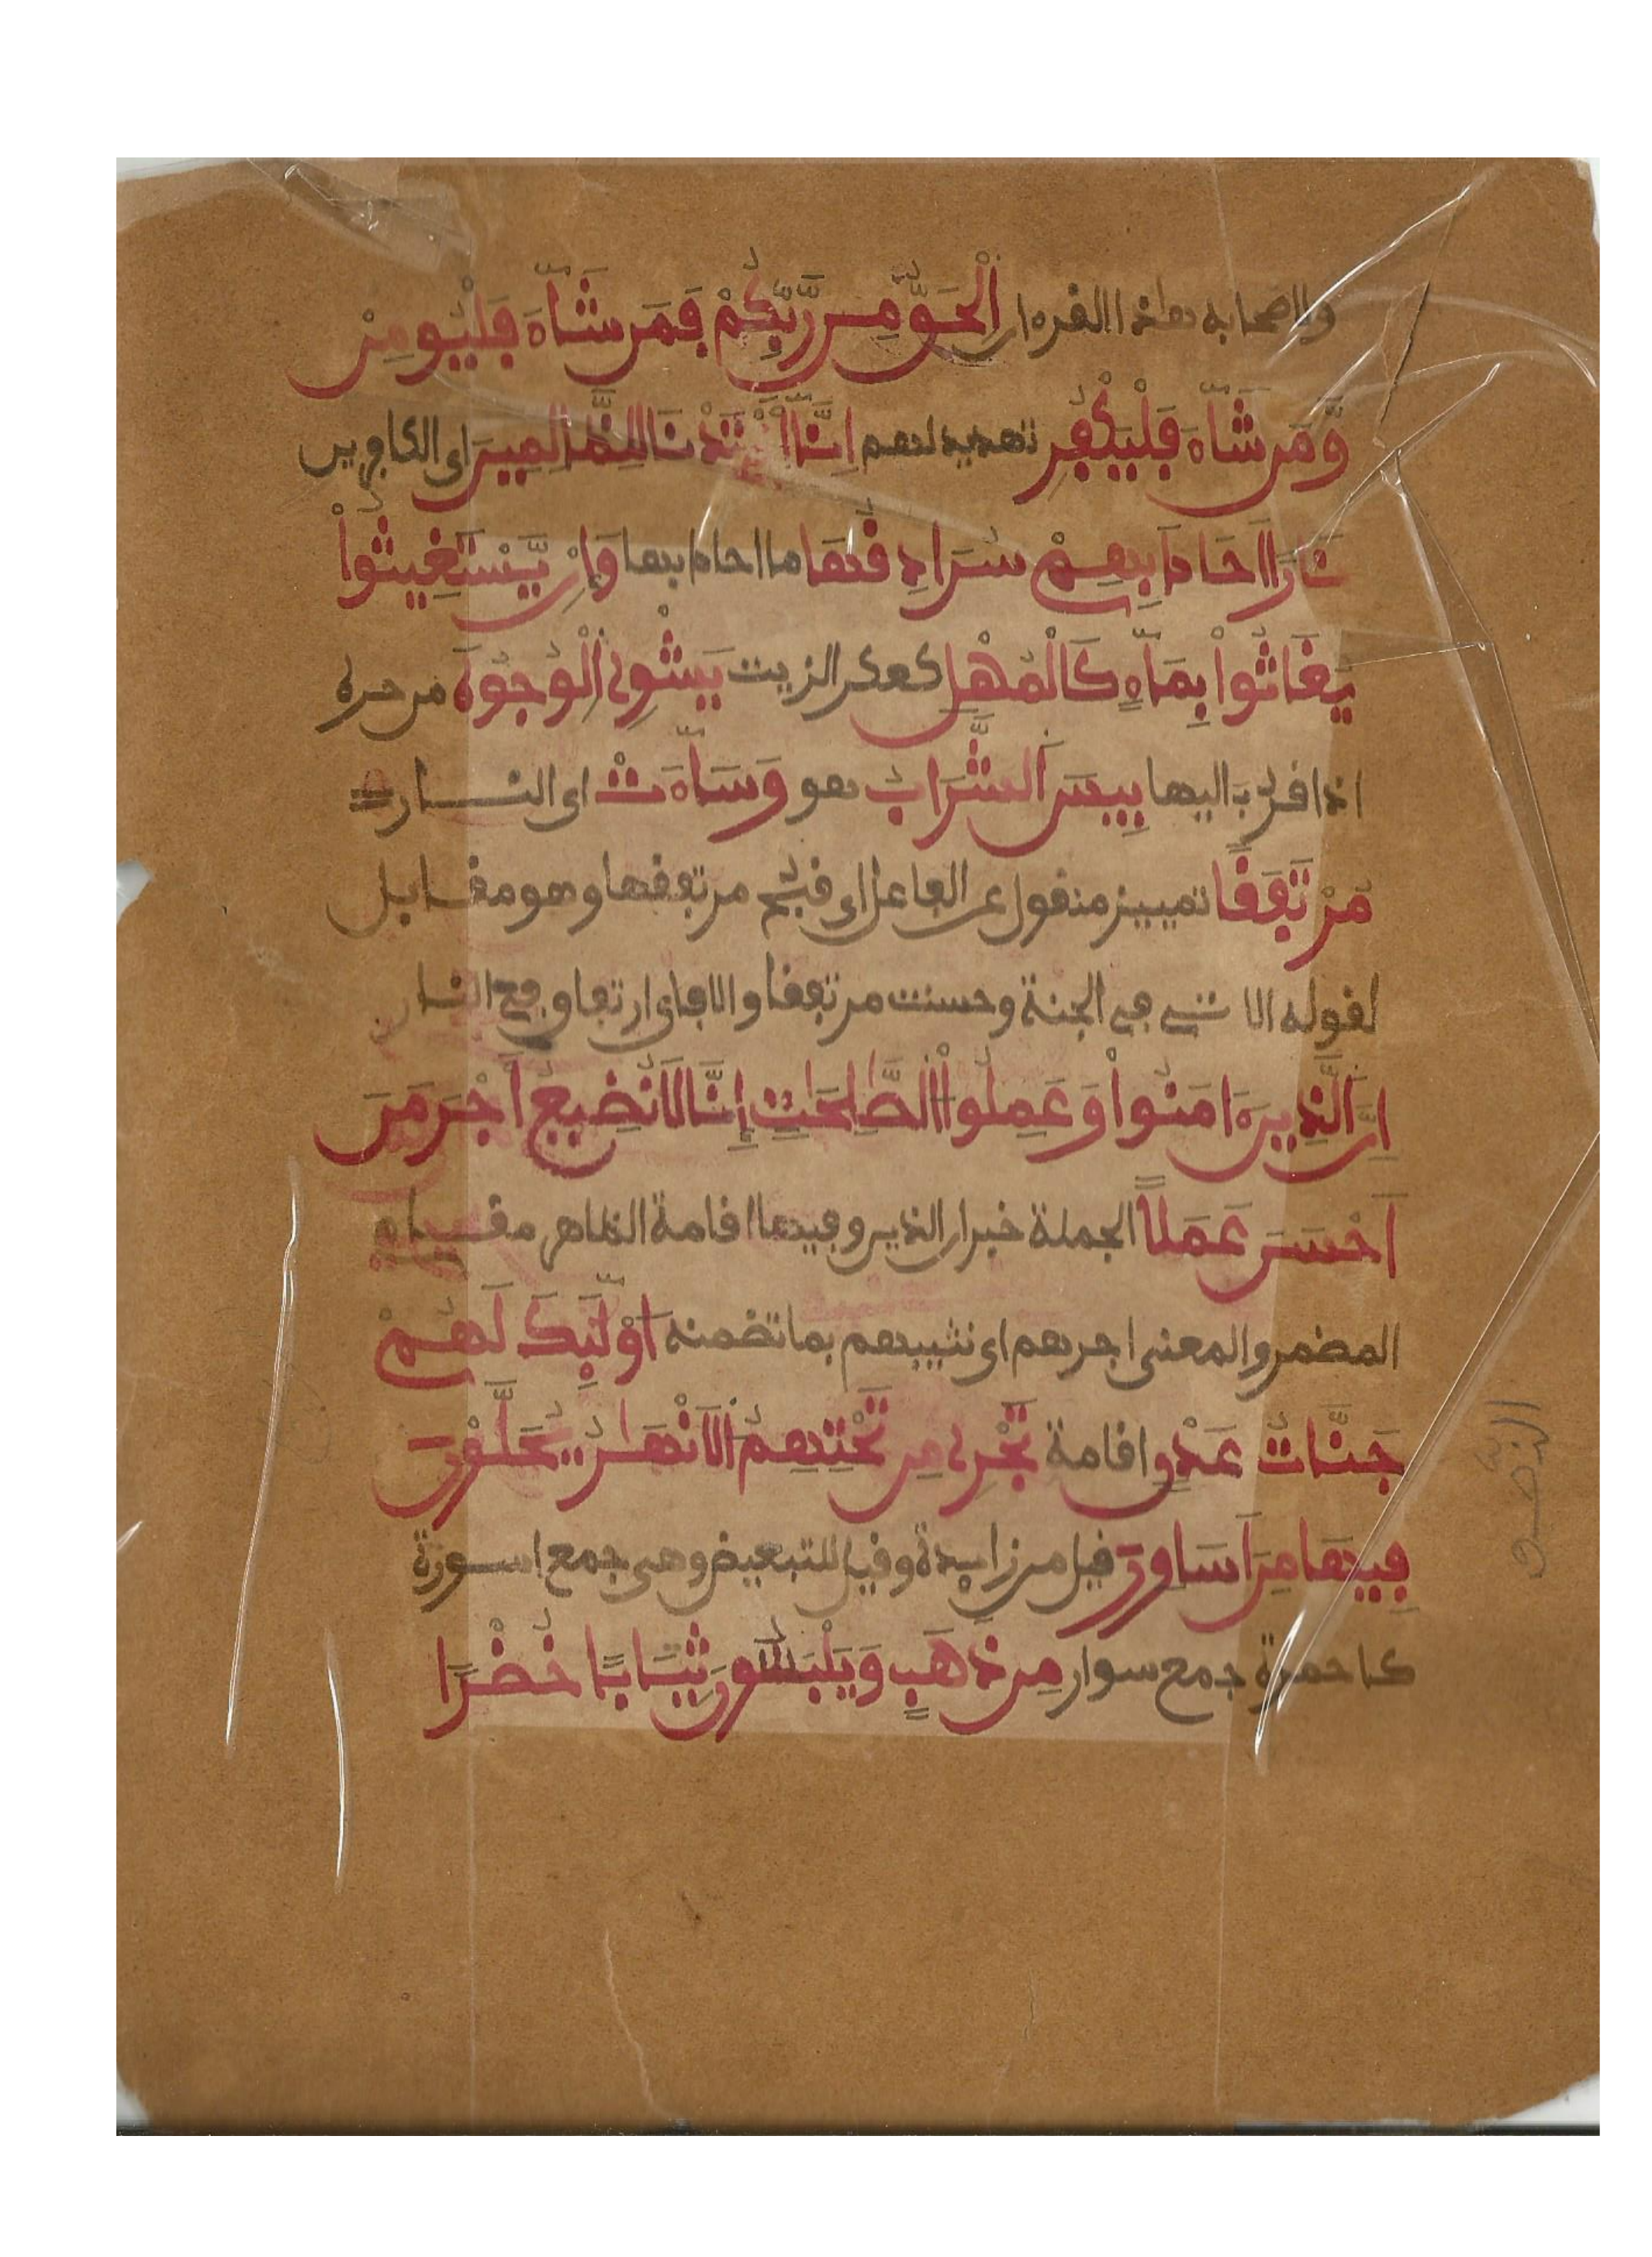 ولاصحابه هاذا القرءان اَلْحَقُّ مِن رَّبِّكُمْ فَمَن شَآءَ فَلْيُومِنْ
وَّمَن شَآءَ فَلْيَكْفُرِ تهديد لهم اِنَّآ أَعْتَدْنَا لِلظَّٰلِمِينَ اى الكافرين
نَارًا اَحَاطَ بِهِمْ سُرَادِقُهَا ما احاط بها وَإِنْ يَّسْتَغِيثُواْ
يُغَاثُواْ بِمَآءٍ كَالْمُهْلِ كعكر الزيت يَشْوِى اِلْوُجُوهَ من حره
اذا قرب اليها بِيسَ اَلشَّرَابُ هو وَسَآءَتْ اى النار
مُرْتَفَقًا تمييز منقول عن الفاعل اى قبح مرتفقها وهو مقابل
لقوله الاتى فى الجنة وحسنت مرتفقا والا فاى ارتفاق فى النار
اِنَّ اَلذِينَ ءَامَنُواْ وَعَمِلُواْ اُلصَّٰلِحَٰتِ إِنَّا لَا نُضِيعُ أَجْرَ مَنَ
اَحْسَنَ عَمَلًا الجملة خبر ان الذين وفيها اقامة الظاهر مقام
المضمر والمعنى اجرهم اى نثيبهم بما تضمنه أُوْلَٰٓئِكَ لَهُمْ
جَنَّاتُ عَدْنٍ اقامة تَجْرِى مِن تَحْتِهِمُ اُلَانْهَٰرُ يُحَلَّوْنَ
فِيهَا مِنَ اَسَاوِرَ قيل من زايدة وقيل للتبعيض وهى جمع اسورة
كاحمرة جمع سوار مِن ذَهَبٍ وَيَلْبَسُونَ ثِيَابًا خُضْرًا
النصف